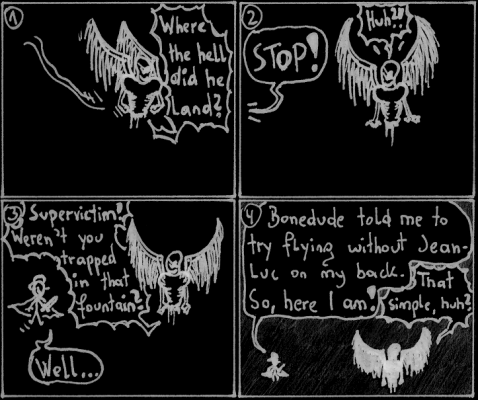 1
Where
the hell
did he
land?
2
STOP!
Huh?!
3
Supervictim?
Weren't you
trapped
in that
fountain?
Well...
4
Bonedude told me to
try flying without Jean-
Luc on my back.
So, here I am!
That
simple, huh?